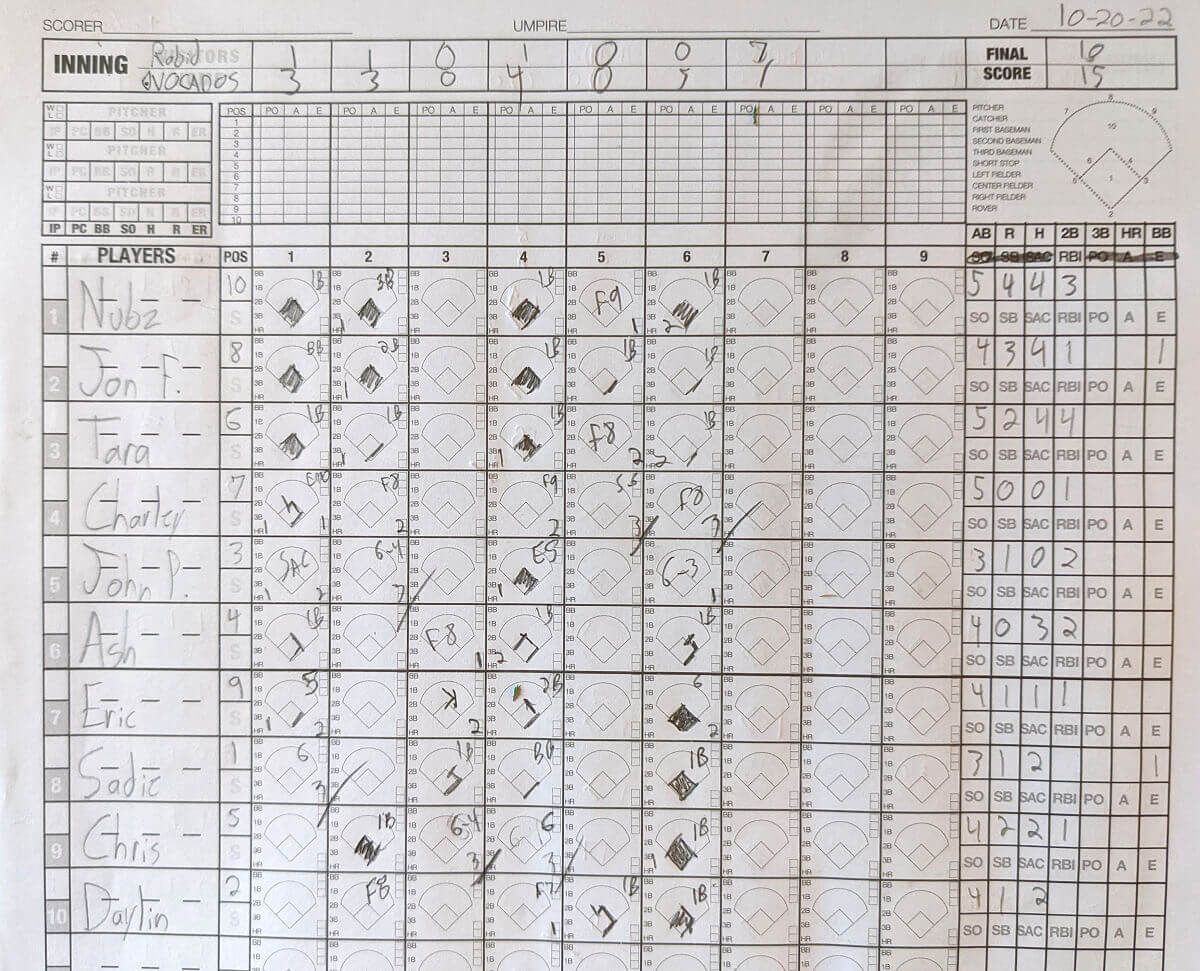 SCORER UMPIRE DATE 10-20-22
INNING Rabid VISITORS 1 1 0 1 0 0 7 FINAL SCORE
AVOCADOS 3 3 0 4 0 5 15
W L PITCHER POS PO A E PO A E PO A E PO A E PO A E PO A E PO A E PO A E PO A E
IP PC BB SO H R ER
W L PITCHER
IP PC BB SO H R ER
W L PITCHER
IP PC BB SO H R ER
IP PC BB SO H R ER
1
2
3
4
5
6
7
8
9
10
PITCHER
CATCHER
FIRST BASEMAN
SECOND BASEMAN
THIRD BASEMAN
SHORT STOP
LEFT FIELDER
CENTER FIELDER
RIGHT FIELDER
ROVER
8
7 9
10
6 4
5 1 3
2
AB R H 2B 3B HR BB
# PLAYERS POS 1 2 3 4 5 6 7 8 9 SO SB SAC RBI PO A E
1 Nubz 10 S 1B 3B 1 1B F9 1 1B 2 5 4 4 3
SO SB SAC RBI PO A E
2 Jon F. 8 S BB 2B 1 1B 1B 1B 4 3 4 1 1
SO SB SAC RBI PO A E
3 Tara 6 S 1B 1B 1 1B 1 F8 2 1B 2 5 2 4 4
SO SB SAC RBI PO A E
4 Charley 7 S 1 1 F8 2 F9 2 3 F8 3 5 0 0 1
SO SB SAC RBI PO A E
5 John P. 3 S SAC 1 2 6-4 E5 1 6-3 1 3 1 0 2
SO SB SAC RBI PO A E
6 Ash 4 S 1B F8 1 1B 2 1B 4 0 3 2
SO SB SAC RBI PO A E
7 Eric 9 S 5 1 2 K 2 2B 6 2 4 1 1 1
SO SB SAC RBI PO A E
8 Sadie 1 S 6 3 1B BB 1B 3 1 2 1
SO SB SAC RBI PO A E
9 Chris 5 S 1B 6-4 3 6 3 1B 1 4 2 2 1
SO SB SAC RBI PO A E
10 Daylin 2 S F8 F7 1 1B 1B 4 1 2
SO SB SAC RBI PO A E